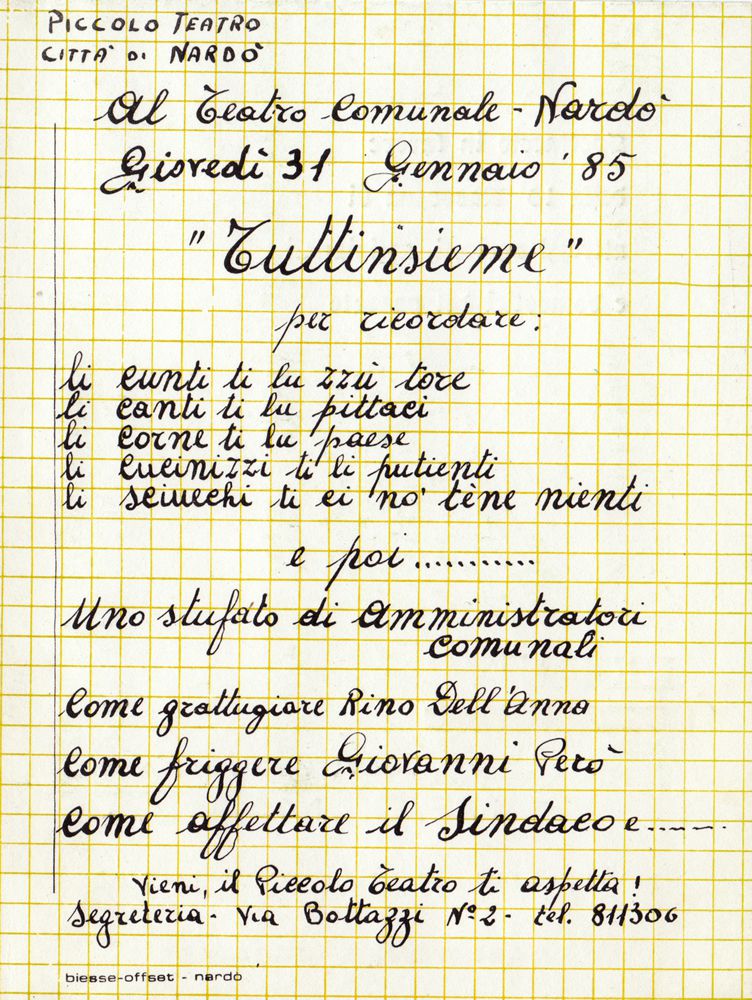 PICCOLO TEATRO
CITTÀ DI NARDÒ
Al Teatro Comunale - Nardò
Giovedì 31 Gennaio '85
"Tuttinsieme"
per ricordare:
li cunti ti lu zzù tore
li canti ti lu pittaci
li corne ti lu paese
li cucinizzi ti li putienti
li sciucchi ti ci no' tène nienti
e poi............
Uno stufato di Amministratori
comunali
Come grattugiare Rino Dell'Anna
Come friggere Giovanni Però
Come affettare il Sindaco e.......
Vieni, il Piccolo Teatro ti aspetta!
Segreteria - Via Bottazzi Nº 2 - tel. 811306
biesse-offset - nardò